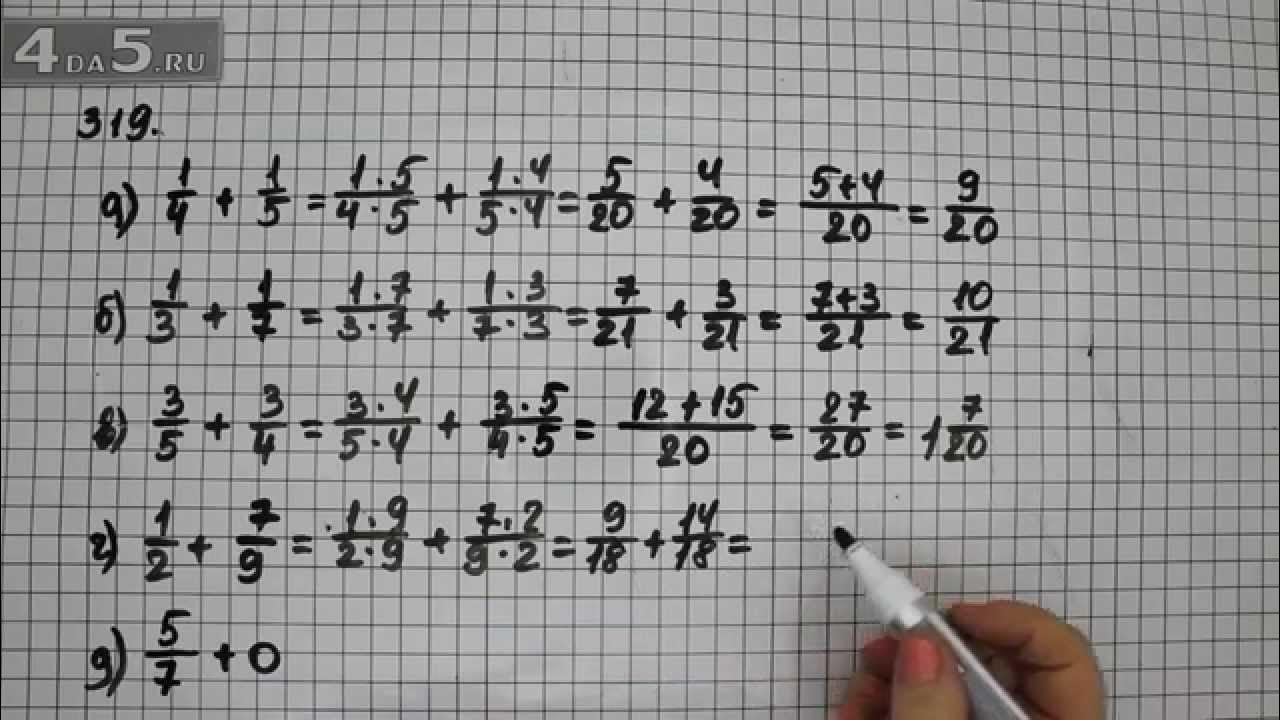 4DA5.RU
319.
а) 1/4 + 1/5 = 1·5/4·5 + 1·4/5·4 = 5/20 + 4/20 = 5+4/20 = 9/20
б) 1/3 + 1/7 = 1·7/3·7 + 1·3/7·3 = 7/21 + 3/21 = 7+3/21 = 10/21
в) 3/5 + 3/4 = 3·4/5·4 + 3·5/4·5 = 12+15/20 = 27/20 = 1 7/20
г) 1/2 + 7/9 = 1·9/2·9 + 7·2/9·2 = 9/18 + 14/18 =
д) 5/7 + 0